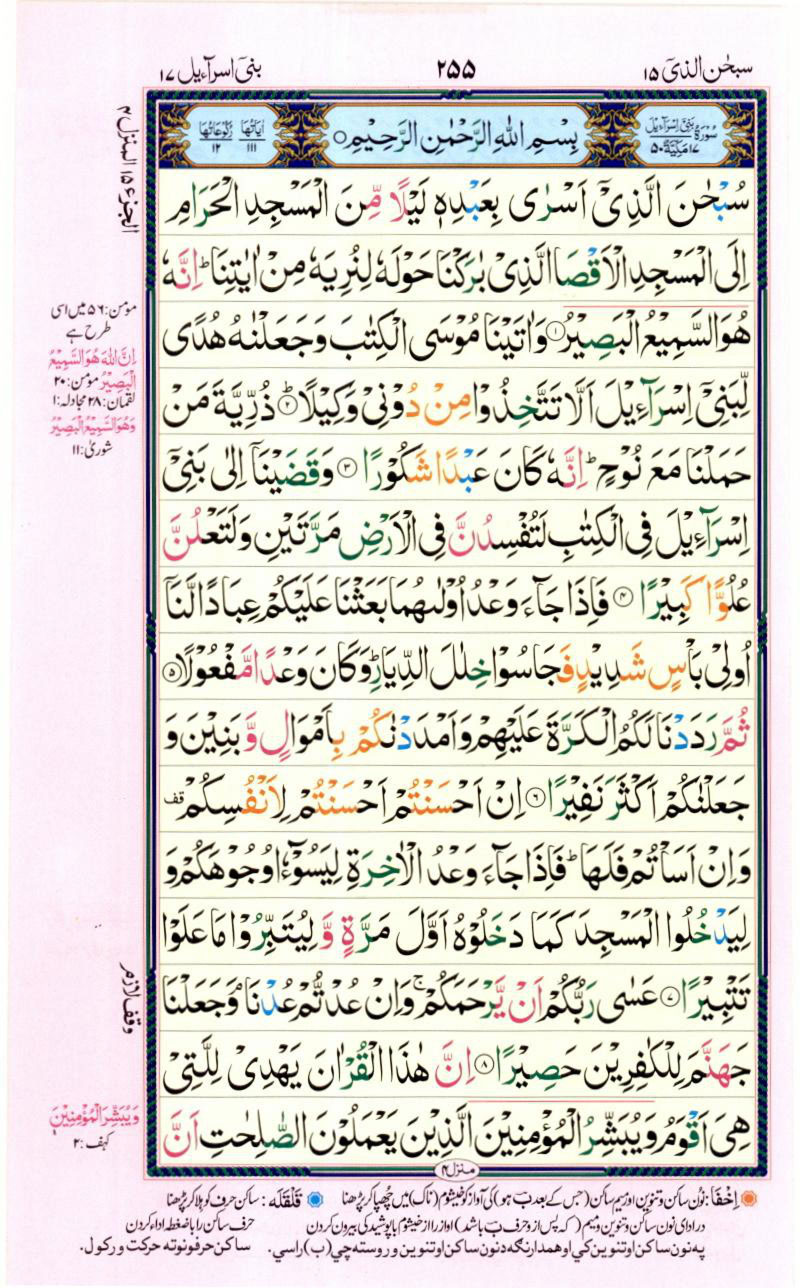 سبحٰن الذیٓ ۱۵
۲۵۵
بنیٓ اسرآءیل ۱۷
سُوْرَةُ بَنِیْٓ اِسْرَآءِیْلَ ۱۷ مَکِّیَّةٌ ۵۰
بِسْمِ اللهِ الرَّحْمٰنِ الرَّحِیْمِ
اٰیَاتُهَا ۱۱۱
رُکُوْعَاتُهَا ۱۲
سُبْحٰنَ الَّذِیْٓ اَسْرٰی بِعَبْدِهٖ لَیْلًا مِّنَ الْمَسْجِدِ الْحَرَامِ
اِلَی الْمَسْجِدِ الْاَقْصَا الَّذِیْ بٰرَكْنَا حَوْلَهٗ لِنُرِیَهٗ مِنْ اٰیٰتِنَا ؕ اِنَّهٗ
هُوَ السَّمِیْعُ الْبَصِیْرُ ۝۱ وَاٰتَیْنَا مُوْسَی الْكِتٰبَ وَجَعَلْنٰهُ هُدًی
لِّبَنِیْٓ اِسْرَآءِیْلَ اَلَّا تَتَّخِذُوْا مِنْ دُوْنِیْ وَكِیْلًا ؕ ۝۲ ذُرِّیَّةَ مَنْ
حَمَلْنَا مَعَ نُوْحٍ ؕ اِنَّهٗ كَانَ عَبْدًا شَكُوْرًا ۝۳ وَقَضَیْنَآ اِلٰی بَنِیْٓ
اِسْرَآءِیْلَ فِی الْكِتٰبِ لَتُفْسِدُنَّ فِی الْاَرْضِ مَرَّتَیْنِ وَلَتَعْلُنَّ
عُلُوًّا كَبِیْرًا ۝۴ فَاِذَا جَآءَ وَعْدُ اُوْلٰىهُمَا بَعَثْنَا عَلَیْكُمْ عِبَادًا لَّنَآ
اُولِیْ بَاْسٍ شَدِیْدٍ فَجَاسُوْا خِلٰلَ الدِّیَارِ ؕ وَكَانَ وَعْدًا مَّفْعُوْلًا ۝۵
ثُمَّ رَدَدْنَا لَكُمُ الْكَرَّةَ عَلَیْهِمْ وَاَمْدَدْنٰكُمْ بِاَمْوَالٍ وَّبَنِیْنَ وَ
جَعَلْنٰكُمْ اَكْثَرَ نَفِیْرًا ۝۶ اِنْ اَحْسَنْتُمْ اَحْسَنْتُمْ لِاَنْفُسِكُمْ قف
وَاِنْ اَسَاْتُمْ فَلَهَا ؕ فَاِذَا جَآءَ وَعْدُ الْاٰخِرَةِ لِیَسُوْٓءٗا وُجُوْهَكُمْ وَ
لِیَدْخُلُوا الْمَسْجِدَ كَمَا دَخَلُوْهُ اَوَّلَ مَرَّةٍ وَّلِیُتَبِّرُوْا مَا عَلَوْا
تَتْبِیْرًا ۝۷ عَسٰی رَبُّكُمْ اَنْ یَّرْحَمَكُمْ ۚ وَاِنْ عُدْتُّمْ عُدْنَا ۘ وَجَعَلْنَا
جَهَنَّمَ لِلْكٰفِرِیْنَ حَصِیْرًا ۝۸ اِنَّ هٰذَا الْقُرْاٰنَ یَهْدِیْ لِلَّتِیْ
هِیَ اَقْوَمُ وَیُبَشِّرُ الْمُؤْمِنِیْنَ الَّذِیْنَ یَعْمَلُوْنَ الصّٰلِحٰتِ اَنَّ
منزل۴
الجزء ۱۵ المنزل ۴
مومن: ۵۶ میں اسی
طرح ہے
اِنَّ اللهَ هُوَ السَّمِیْعُ
الْبَصِیْرُ مومن: ۲۰
لقمان: ۲۸ مجادلہ: ۱
وَهُوَ السَّمِیْعُ الْبَصِیْرُ
شوریٰ: ۱۱
وقف لازم
وَیُبَشِّرَ الْمُؤْمِنِیْنَ
کہف: ۲
اِخْفَا: نون ساکن و تنوین اور میم ساکن (جس کے بعد ب ہو) کی آواز کو خیشوم (ناک) میں چھپا کر پڑھنا
قَلْقَلَہ: ساکن حرف کو ہلا کر پڑھنا
در ادای نون ساکن و تنوین و میم (که پس از و حرف ب باشد) آواز را از خیشوم با پوشیدگی بیرون کردن
حرف ساکن را با ضغطه ادا کردن
په نون ساکن او تنوین کي او همدارنګه د نون ساکن او تنوین وروسته چي (ب) راسي.
ساکن حرفونو ته حرکت ورکول.